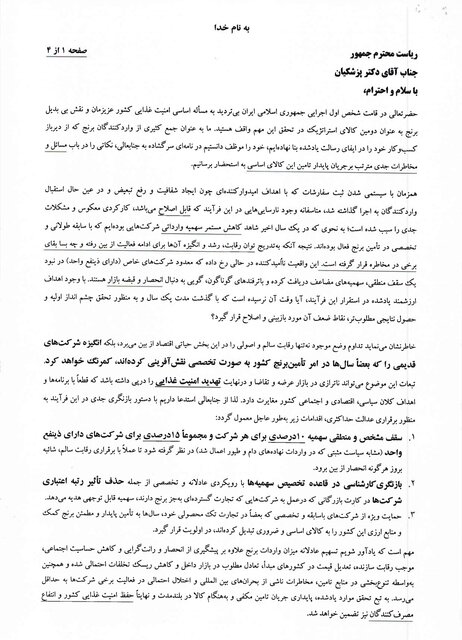 به نام خدا
صفحه ۱ از ۴
ریاست محترم جمهور
جناب آقای دکتر پزشکیان
با سلام و احترام،
حضرتعالی در قامت شخص اول اجرایی جمهوری اسلامی ایران بی‌تردید به مسأله اساسی امنیت غذایی کشور عزیزمان و نقش بی بدیل
برنج به عنوان دومین کالای استراتژیک در تحقق این مهم واقف هستید. ما به عنوان جمع کثیری از واردکنندگان برنج که از دیرباز
کسب‌وکار خود را در ایفای رسالت یادشده بنا نهاده‌ایم، خود را موظف دانستیم در نامه‌ای سرگشاده به جنابعالی، نکاتی را در باب مسائل و
مخاطرات جدی مترتب برجریان پایدار تامین این کالای اساسی به استحضار برسانیم.
همزمان با سیستمی شدن ثبت سفارشات که با اهداف امیدوارکننده‌ای چون ایجاد شفافیت و رفع تبعیض و در عین حال استقبال
واردکنندگان به اجرا گذاشته شد، متاسفانه وجود نارسایی‌هایی در این فرآیند که قابل اصلاح می‌باشد، کارکردی معکوس و مشکلات
جدی را سبب شده است؛ به نحوی که در یک سال اخیر شاهد کاهش مستمر سهمیه وارداتی شرکت‌هایی بوده‌ایم که با سابقه طولانی و
تخصصی در تأمین برنج فعال بوده‌اند. نتیجه آنکه به‌تدریج توان رقابت، رشد و انگیزه آن‌ها برای ادامه فعالیت از بین رفته و چه بسا بقای
برخی در مخاطره قرار گرفته است. این واقعیت تأمیدکننده در حالی رخ داده که معدود شرکت‌های خاص (دارای ذینفع واحد) در نبود
یک سقف منطقی، سهمیه‌های مضاعف دریافت کرده و باترفندهای گوناگون، گویی به دنبال انحصار و قبضه بازار هستند. با وجود اهداف
ارزشمند یادشده در استقرار این فرآیند، آیا وقت آن نرسیده است که با گذشت مدت یک سال و به منظور تحقق چشم انداز اولیه و
حصول نتایجی مطلوب‌تر، نقاط ضعف آن مورد بازبینی و اصلاح قرار گیرد؟
خاطرنشان می‌نماید تداوم وضع موجود نه‌تنها رقابت سالم و اصولی را در این بخش حیاتی اقتصاد از بین می‌برد، بلکه انگیزه شرکت‌های
قدیمی را که بعضاً سال‌ها در امر تأمین‌برنج کشور به صورت تخصصی نقش‌آفرینی کرده‌اند، کم‌رنگ خواهد کرد.
تبعات این موضوع می‌تواند ناترازی در بازار عرضه و تقاضا و درنهایت تهدید امنیت غذایی را درپی داشته باشد که قطعاً با برنامه‌ها و
اهداف کلان سیاسی، اقتصادی و اجتماعی کشور مغایرت دارد. لذا از جنابعالی استدعا داریم با دستور بازنگری جدی در این فرآیند به
منظور برقراری عدالت حداکثری، اقدامات زیر به‌طور عاجل معمول گردد:
۱. سقف مشخص و منطقی سهمیه ۱۰درصدی برای هر شرکت و مجموعاً ۱۵درصدی برای شرکت‌های دارای ذینفع
واحد (مشابه سیاست مثبتی که در واردات نهاده‌های دام و طیور اعمال شد) در نظر گرفته شود تا عملاً با برقراری رقابت سالم، شائبه
بروز هرگونه انحصار از بین برود.
۲. بازنگری‌کارشناسی در قاعده تخصیص سهمیه‌ها با رویکردی عادلانه و تخصصی از جمله حذف تأثیر رتبه اعتباری
شرکت‌ها در کارت بازرگانی که درعمل به شرکت‌هایی که تجارت گسترده‌ای به‌جز برنج دارند، سهمیه قابل توجهی هدیه می‌دهد.
۳. حمایت ویژه از شرکت‌های باسابقه و تخصصی که بعضاً در تجارت تک محصولی خود، سال‌ها به تأمین پایدار و مطمئن برنج کمک
و منابع ارزی این کشور را به کالای اساسی و ضروری تبدیل کرده‌اند، در اولویت قرار گیرد.
مهم است که یادآور شویم تسهیم عادلانه میزان واردات برنج علاوه بر پیشگیری از انحصار و رانت‌گرایی و کاهش حساسیت اجتماعی،
موجب رقابت سازنده، تعدیل قیمت در کشورهای مبدأ، تعادل مطلوب در بازار داخل و کاهش ریسک تخلفات احتمالی شده و همچنین
به‌واسطه تنوع‌بخشی در منابع تامین، مخاطرات ناشی از بحران‌های بین المللی و اختلال احتمالی در فعالیت برخی شرکت‌ها به حداقل
می‌رسد. به تبع تحقق موارد یادشده، پایداری جریان تامین مکفی و به‌هنگام کالا در بلندمدت و نهایتاً حفظ امنیت غذایی کشور و انتفاع
مصرف‌کنندگان نیز تضمین خواهد شد.